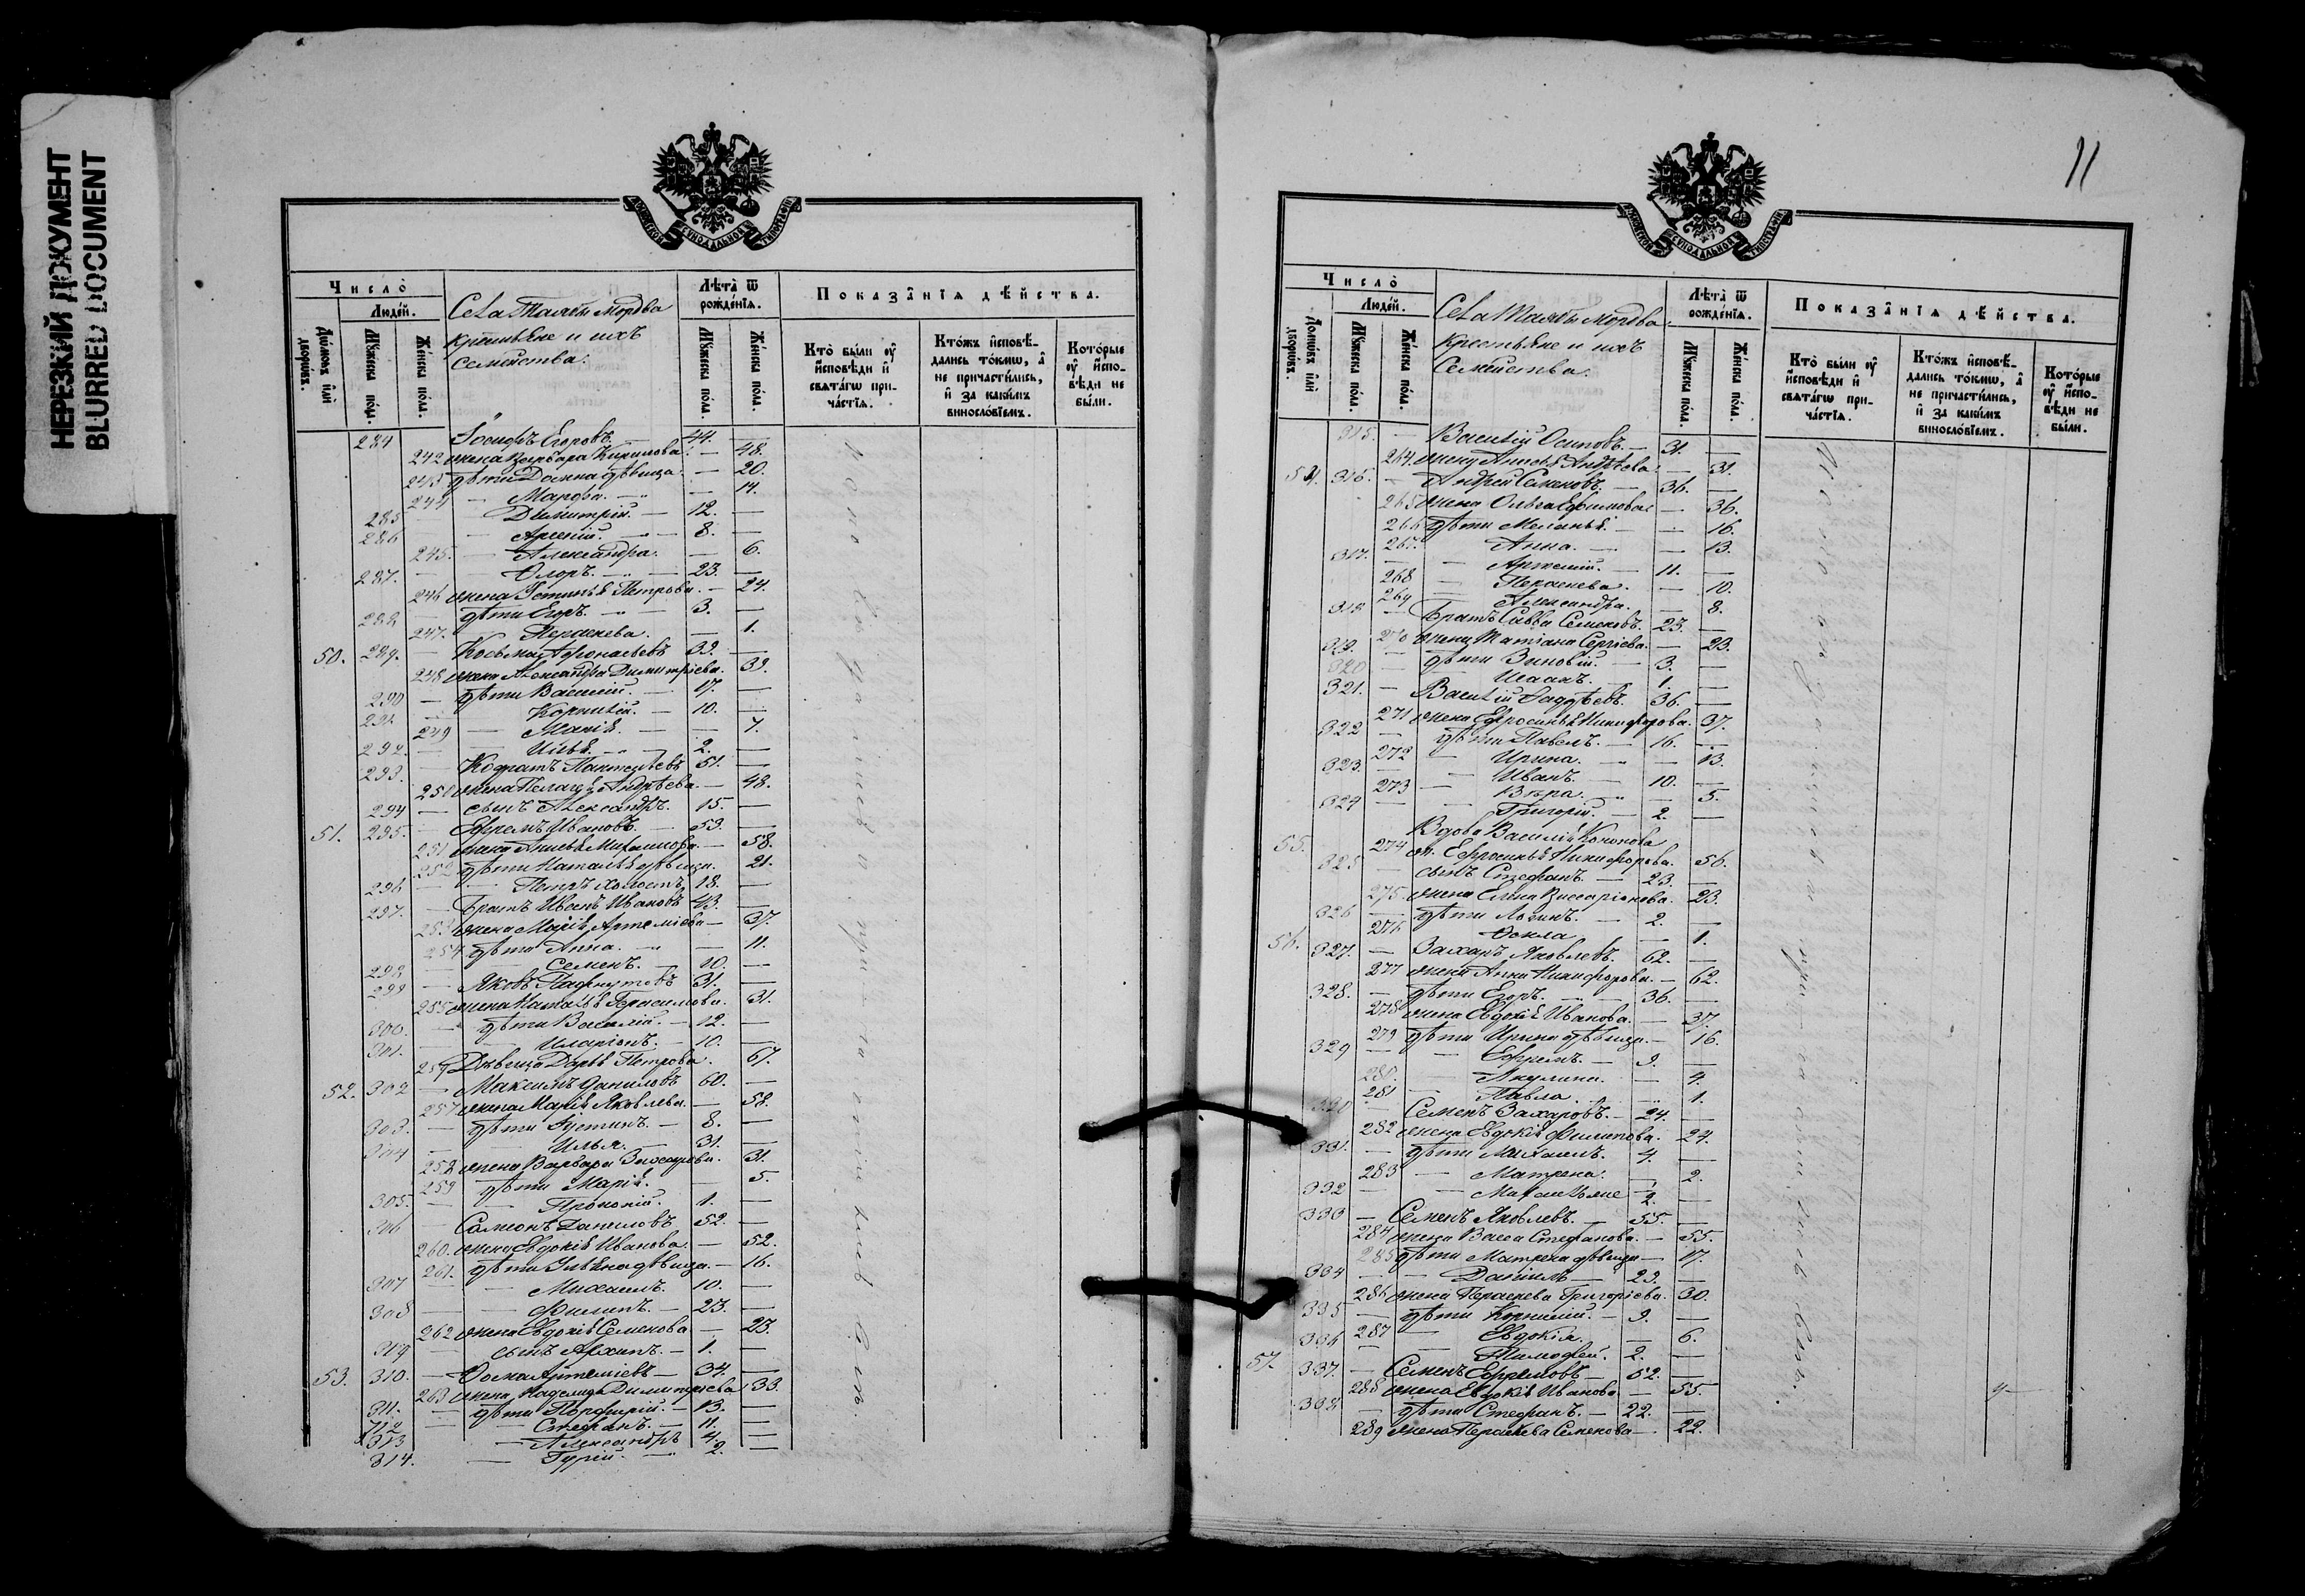 НЕРЕЗКИЙ ДОКУМЕНТ
BLURRED DOCUMENT
МОСКОВСКОЙ СѴНОДАЛЬНОЙ ТИПОГРАФІИ
Число̀
Людéй.
Домѡ́въ и҆лѝ дворѡ́въ.
Мꙋ́жеска по́ла.
Же́нска по́ла.
Села Талызы Мордва
крестьяне и ихъ
семейства:
Лѣ́та ѿ рождéнїѧ.
Мꙋ́жеска по́ла.
Же́нска по́ла.
Показа̑нїѧ дѣ́йства.
Кто̀ бы́ли ᲂу҆ и҆сповѣ́ди и҆ свѧта́гѡ причáстїѧ.
Кто́жъ и҆сповѣ́дались то́кмѡ, а҆ не причасти́лись, и҆ за каки́мъ винослóвїемъ.
Кото́рые ᲂу҆ и҆сповѣ́ди не бы́ли.
284 Іосифъ Егоровъ. 44. —
242 жена Варвара Кирилова. — 48.
243 дѣти Домна дѣвица. — 20.
244 — Марфа. — 14.
285 — Димитрій. — 12. —
286 — Арсеній. — 8. —
245. — Александра. — 6.
287. — Флоръ. — 23. —
246 жена Устинья Петрова. — 24.
288 — дѣти Егоръ. — 3. —
247. Параскева. — 1.
50. 289. — Косьма Афонасьевъ 39. —
248 жена Александра Димитріева. 39.
290 — дѣти Василій. — 17. —
291. — Корнилій. — 10. —
249 — Марія. — 7.
292. — Илья. — 2. —
293. — Кодратъ Пантелѣевъ 51. —
250 жена Пелагія Андрѣева. — 48.
294 — сынъ Александръ. 15. —
51. 295. — Ефремъ Ивановъ. — 53. —
251 жена Анисья Михаилова. — 58.
252 дѣти Наталья дѣвица. 21.
296 — Петръ холостъ 18. —
297. — Братъ Иванъ Ивановъ 43. —
253 жена Марія Артеміева — 37.
254 дѣти Анна. — 11.
298 — Семенъ. — 10. —
299 — Яковъ Пафнутьевъ 31. —
255 жена Наталья Герасимова. 31.
300. — дѣти Василій. — 12. —
301. — Иларіонъ. — 10. —
Дѣвица Дарья Петрова. 67.
52. 302 — Максимъ Даниловъ 60. —
257 жена Марія Яковлева. — 58.
303. — дѣти Устинъ. — 8. —
304 — Илья. — 31. —
258 жена Варвара Захарова. 31.
259 дѣти Марія. — 5.
305. — Прокопій. 1. —
306 — Самсонъ Даниловъ 52. —
260. жена Евдокія Иванова. — 52.
261. дѣти Ульяна дѣвица. — 16.
307 — Михаилъ. 10. —
308 — Филипъ. — 23. —
262 жена Евдокія Семенова — 23.
309 — сынъ Архипъ. — 1. —
53. 310. — Фома Артеміевъ — 34. —
263 жена Надежда Димитріева 33.
311. — дѣти Порфирій. — 13. —
312 — Стефанъ. — 11. —
313 — Александръ 4. —
314. — Гурій. — 2. —
11
МОСКОВСКОЙ СѴНОДАЛЬНОЙ ТИПОГРАФІИ
Число̀
Людéй.
Домѡ́въ и҆лѝ дворѡ́въ.
Мꙋ́жеска по́ла.
Же́нска по́ла.
Села Талызы Мордва
крестьяне и ихъ
семейства.
Лѣ́та ѿ рождéнїѧ.
Мꙋ́жеска по́ла.
Же́нска по́ла.
Показа̑нїѧ дѣ́йства.
Кто̀ бы́ли ᲂу҆ и҆сповѣ́ди и҆ свѧта́гѡ причáстїѧ.
Кто́жъ и҆сповѣ́дались то́кмѡ, а҆ не причасти́лись, и҆ за каки́мъ винослóвїемъ.
Кото́рые ᲂу҆ и҆сповѣ́ди не бы́ли.
315. — Василій Осиповъ. — 31. —
264. жена Анисья Андрѣева. — 31.
54. 316. — Андрей Семеновъ. — 36. —
265 жена Ольга Ефимова — 36.
266 дѣти Меланья. — 16.
267. Анна. — 13.
317. — Артемій. — 11. —
268 — Параскева. — 10.
269 — Александра. — 8.
318 — Братъ Савва Семеновъ. 23. —
270 жена Татіана Сергіева. — 23.
319. — дѣти Зиновій. — 3. —
320 — Исаакъ. — 1. —
321. — Василій Фаддѣевъ. 36. —
271 жена Ефросинья Никифорова. 37.
322 — дѣти Павелъ. — 16. —
272 — Ирина. — 13.
323. — Иванъ. — 10. —
273 — Вѣра. — 5.
324 — Григорій. — 2. —
55. Вдова Василія Кононова
274 ж. Ефросинья Никифорова. 56.
325 — сынъ Стефанъ. — 23. —
275. жена Елена Виссаріонова. 23.
326 — дѣти Логинъ. — 2. —
276 Фекла — 1.
56. 327. — Захаръ Яковлевъ. 62. —
277 жена Анна Никифорова. — 62.
328. — дѣти Егоръ. — 36. —
278 жена Евдокія Иванова. — 37.
279 дѣти Ирина дѣвица. — 16.
329 — Ефремъ. — 9. —
280. — Акулина. — 4.
281 Павла. 1.
330 — Семенъ Захаровъ. — 24. —
282 жена Евдокія Филипова. 24.
331. — дѣти Михаилъ. 4. —
283 — Матрена. — 2.
332 — 2. —
333 — Семенъ Яковлевъ. — 55. —
284 жена Васса Стефанова. — 55.
285 дѣти Матрена дѣвица — 17.
334 — Даніилъ — 29. —
286 жена Параскева Григоріева. 30.
335 — дѣти Корнилій. — 9. —
287 — Евдокія. — 6.
336 — Тимофей. 2. —
57. 337. — Семенъ Ефремовъ — 52. —
288 жена Евдокія Иванова — 55.
338 — дѣти Стефанъ. — 22. —
289 жена Параскева Семенова — 22.